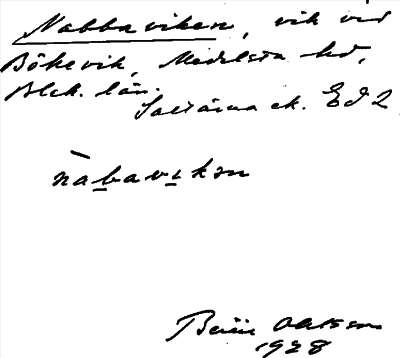 Nabbaviken, vik vid
Bökevik, Medelsta hd,
Blek. län.
Saxia ek. Ed 2
nabavikən
Ohlsson
1928